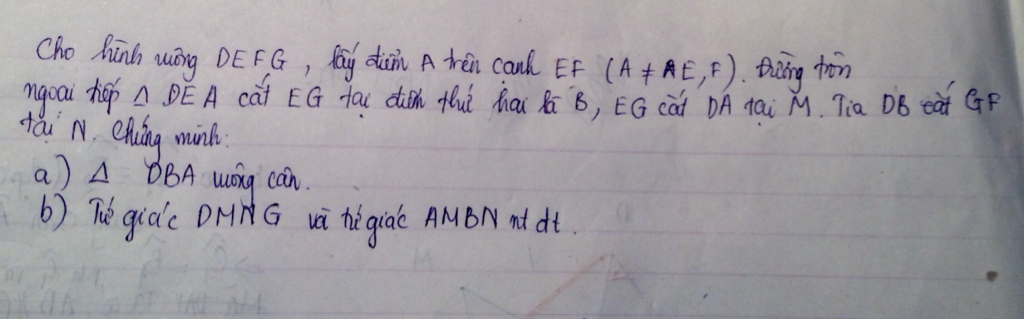 Cho hình vuông DEFG, lấy điểm A trên cạnh EF (A ≠ E, F). Đường tròn
ngoại tiếp Δ DEA cắt EG tại điểm thứ hai là B, EG cắt DA tại M. Tia DB cắt GF
tại N. Chứng minh:
a) Δ DBA vuông cân.
b) Tứ giác DMNG và tứ giác AMBN nt đt.